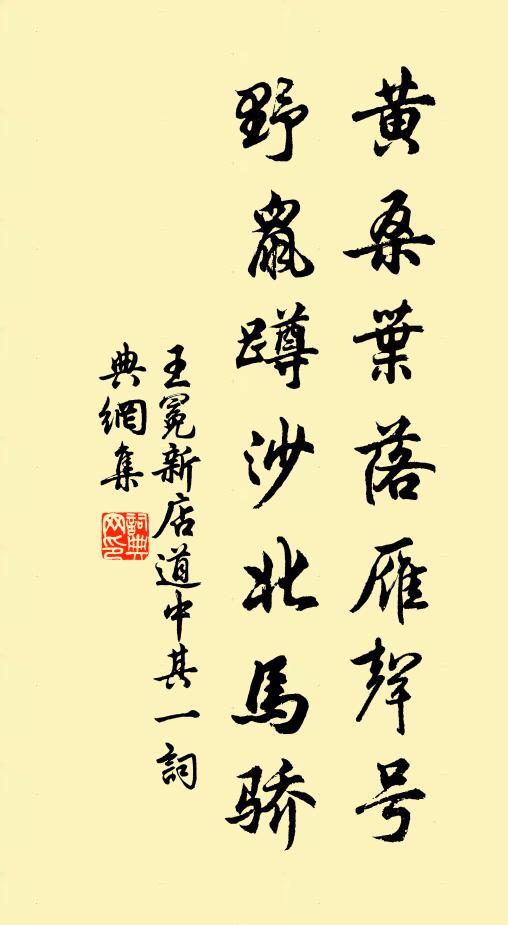 黄桑葉落雁聲号
野鼠蹲沙北馬骄
王冕新店道中其一詞
典網集
詞典
网印